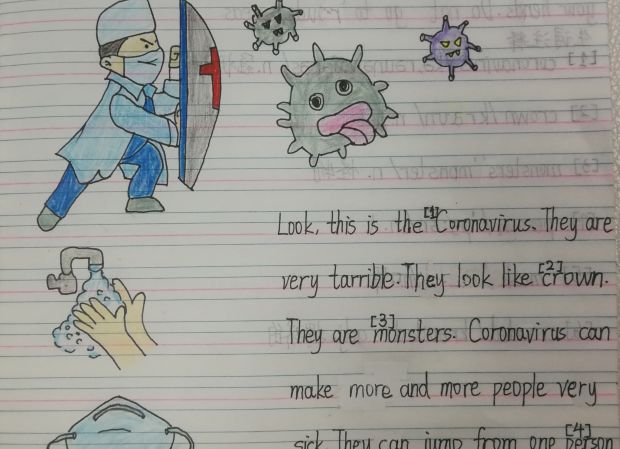 Look, this is the [1]Coronavirus. They are
very tarrible. They look like [2]crown.
They are [3]monsters. Coronavirus can
make more and more people very
sick. They can jump from one [4]person